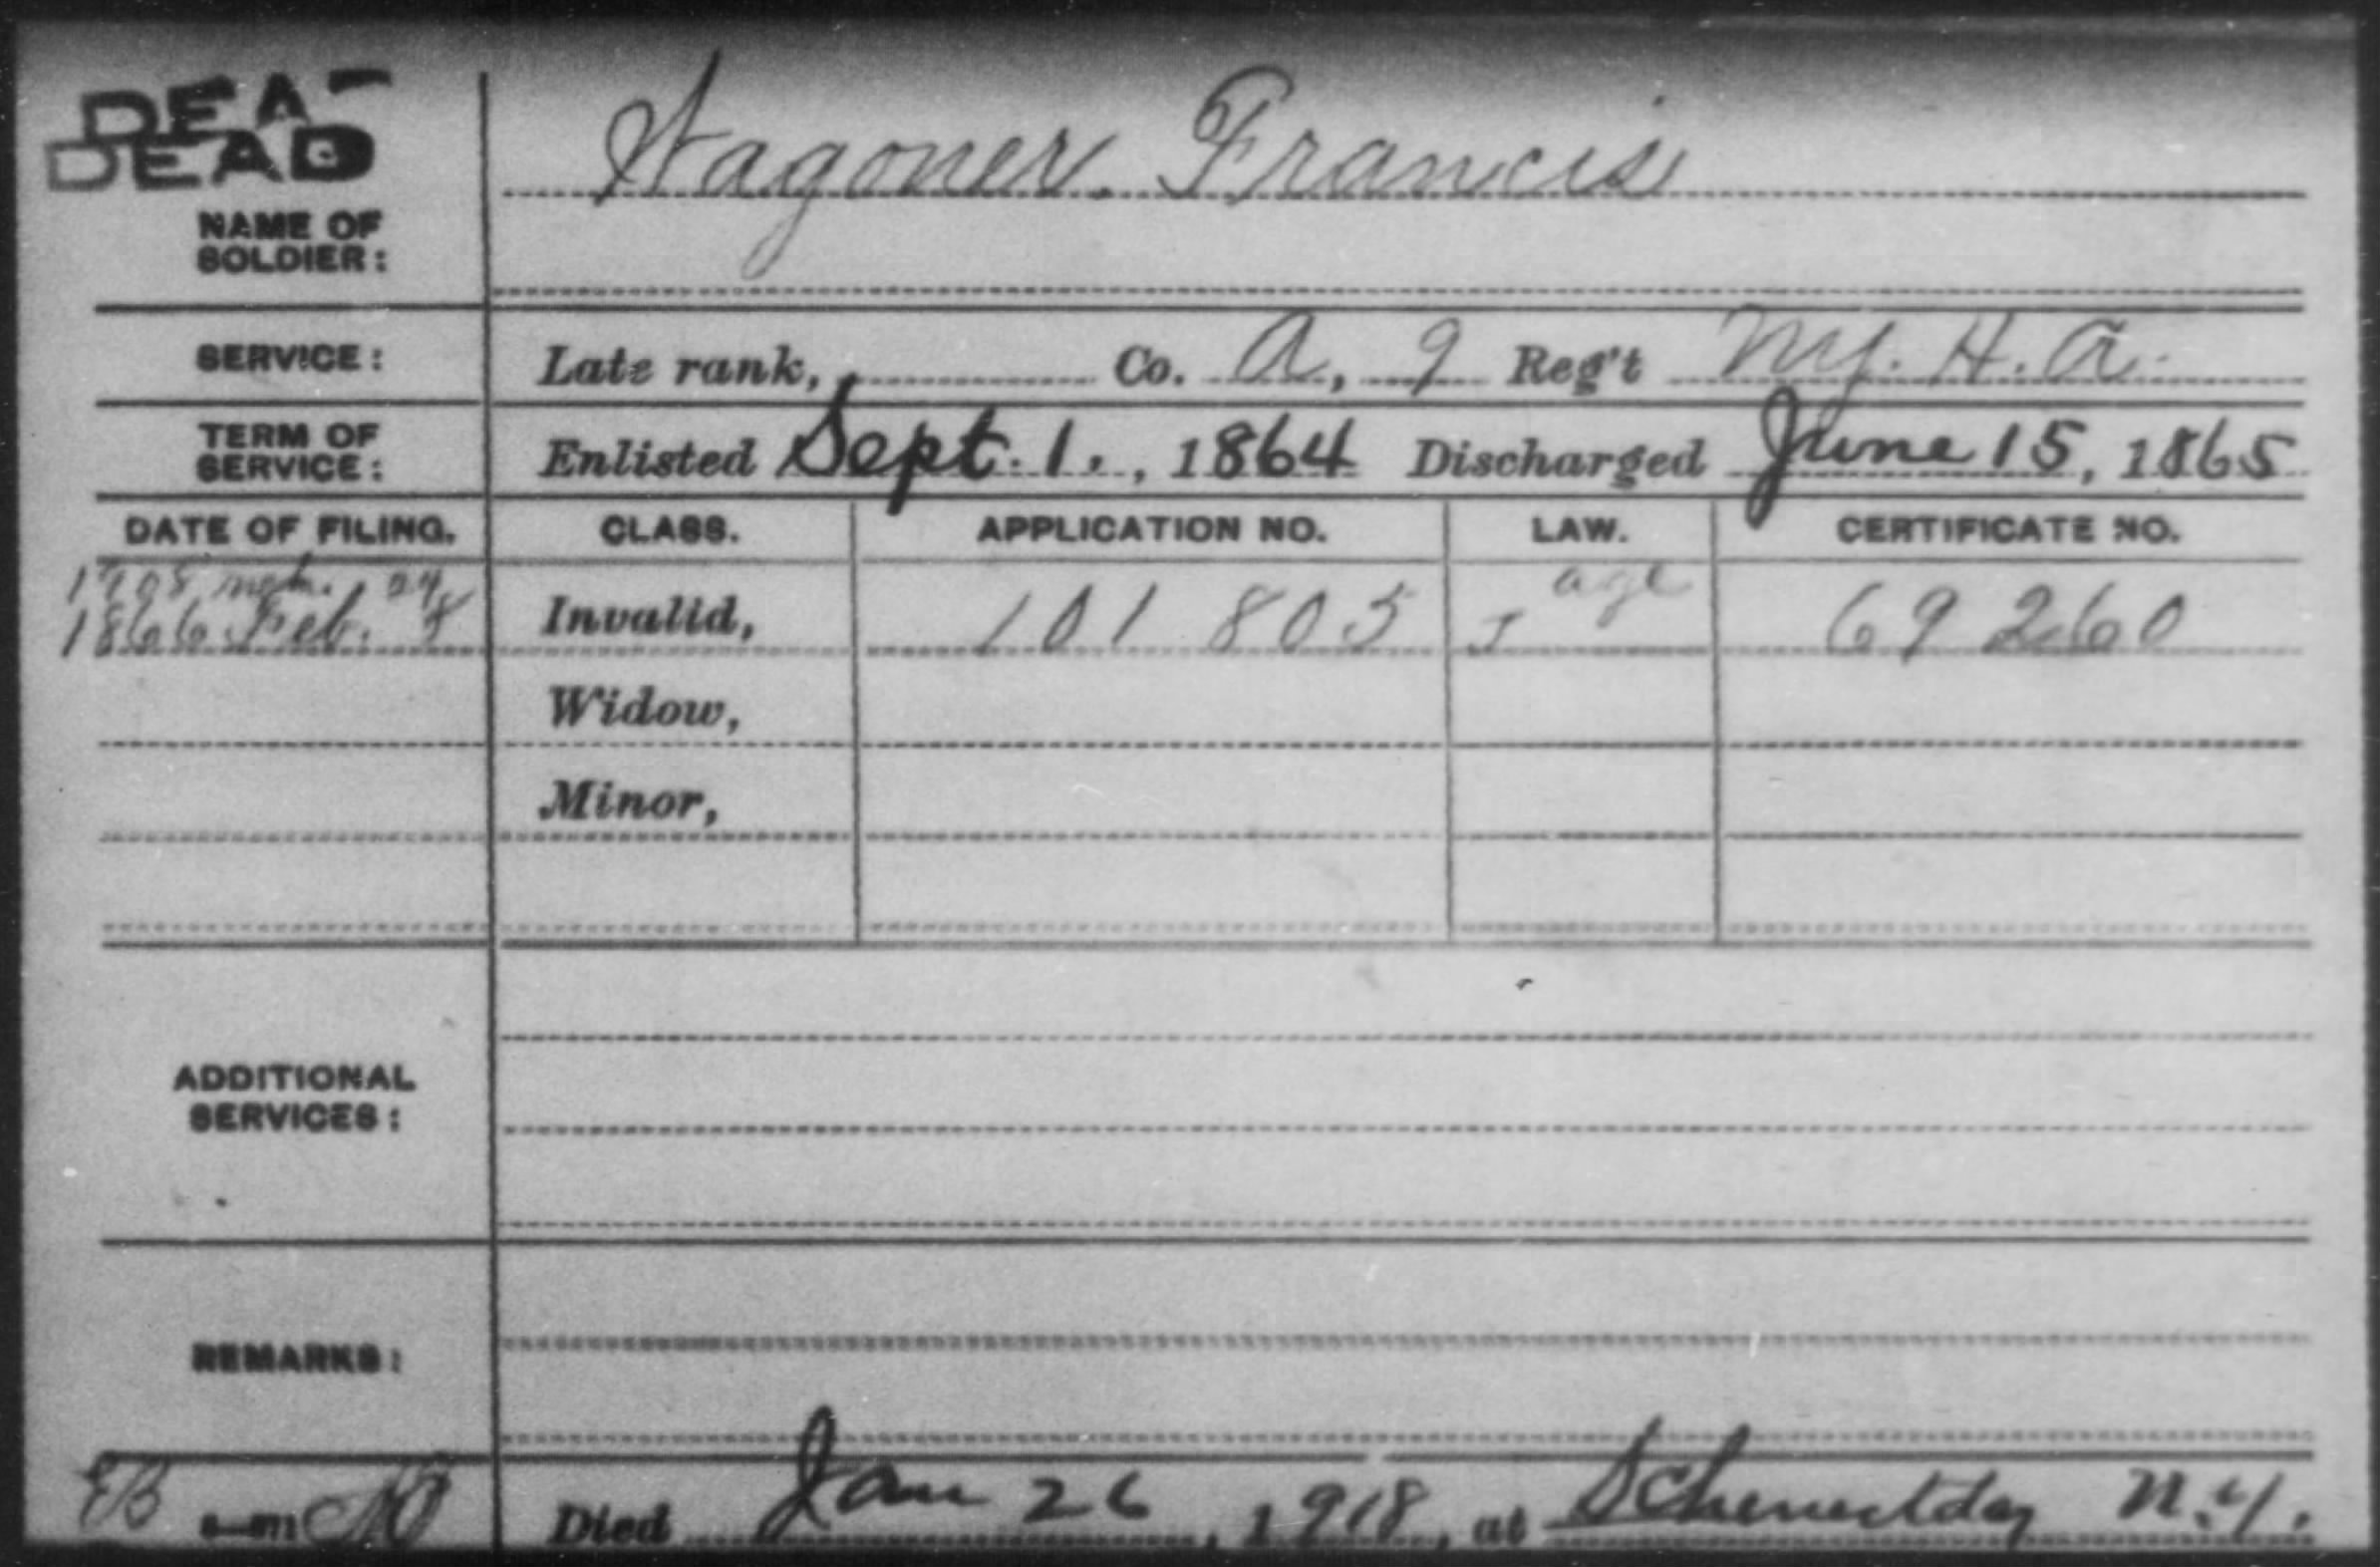 DEA
DEAD
NAME OF SOLDIER:
Wagoner. Francis
SERVICE: Late rank, Co. A, 9 Reg't N.Y. H. A.
TERM OF SERVICE: Enlisted Sept. 1., 1864 Discharged June 15, 1865
DATE OF FILING. CLASS. APPLICATION NO. LAW. CERTIFICATE NO.
1908 24 age
1866 Feb. 8 Invalid, 101 805 J 69 260
Widow,
Minor,
ADDITIONAL SERVICES:
REMARKS:
Died Jan 26, 1918, at Schenectday N.Y.